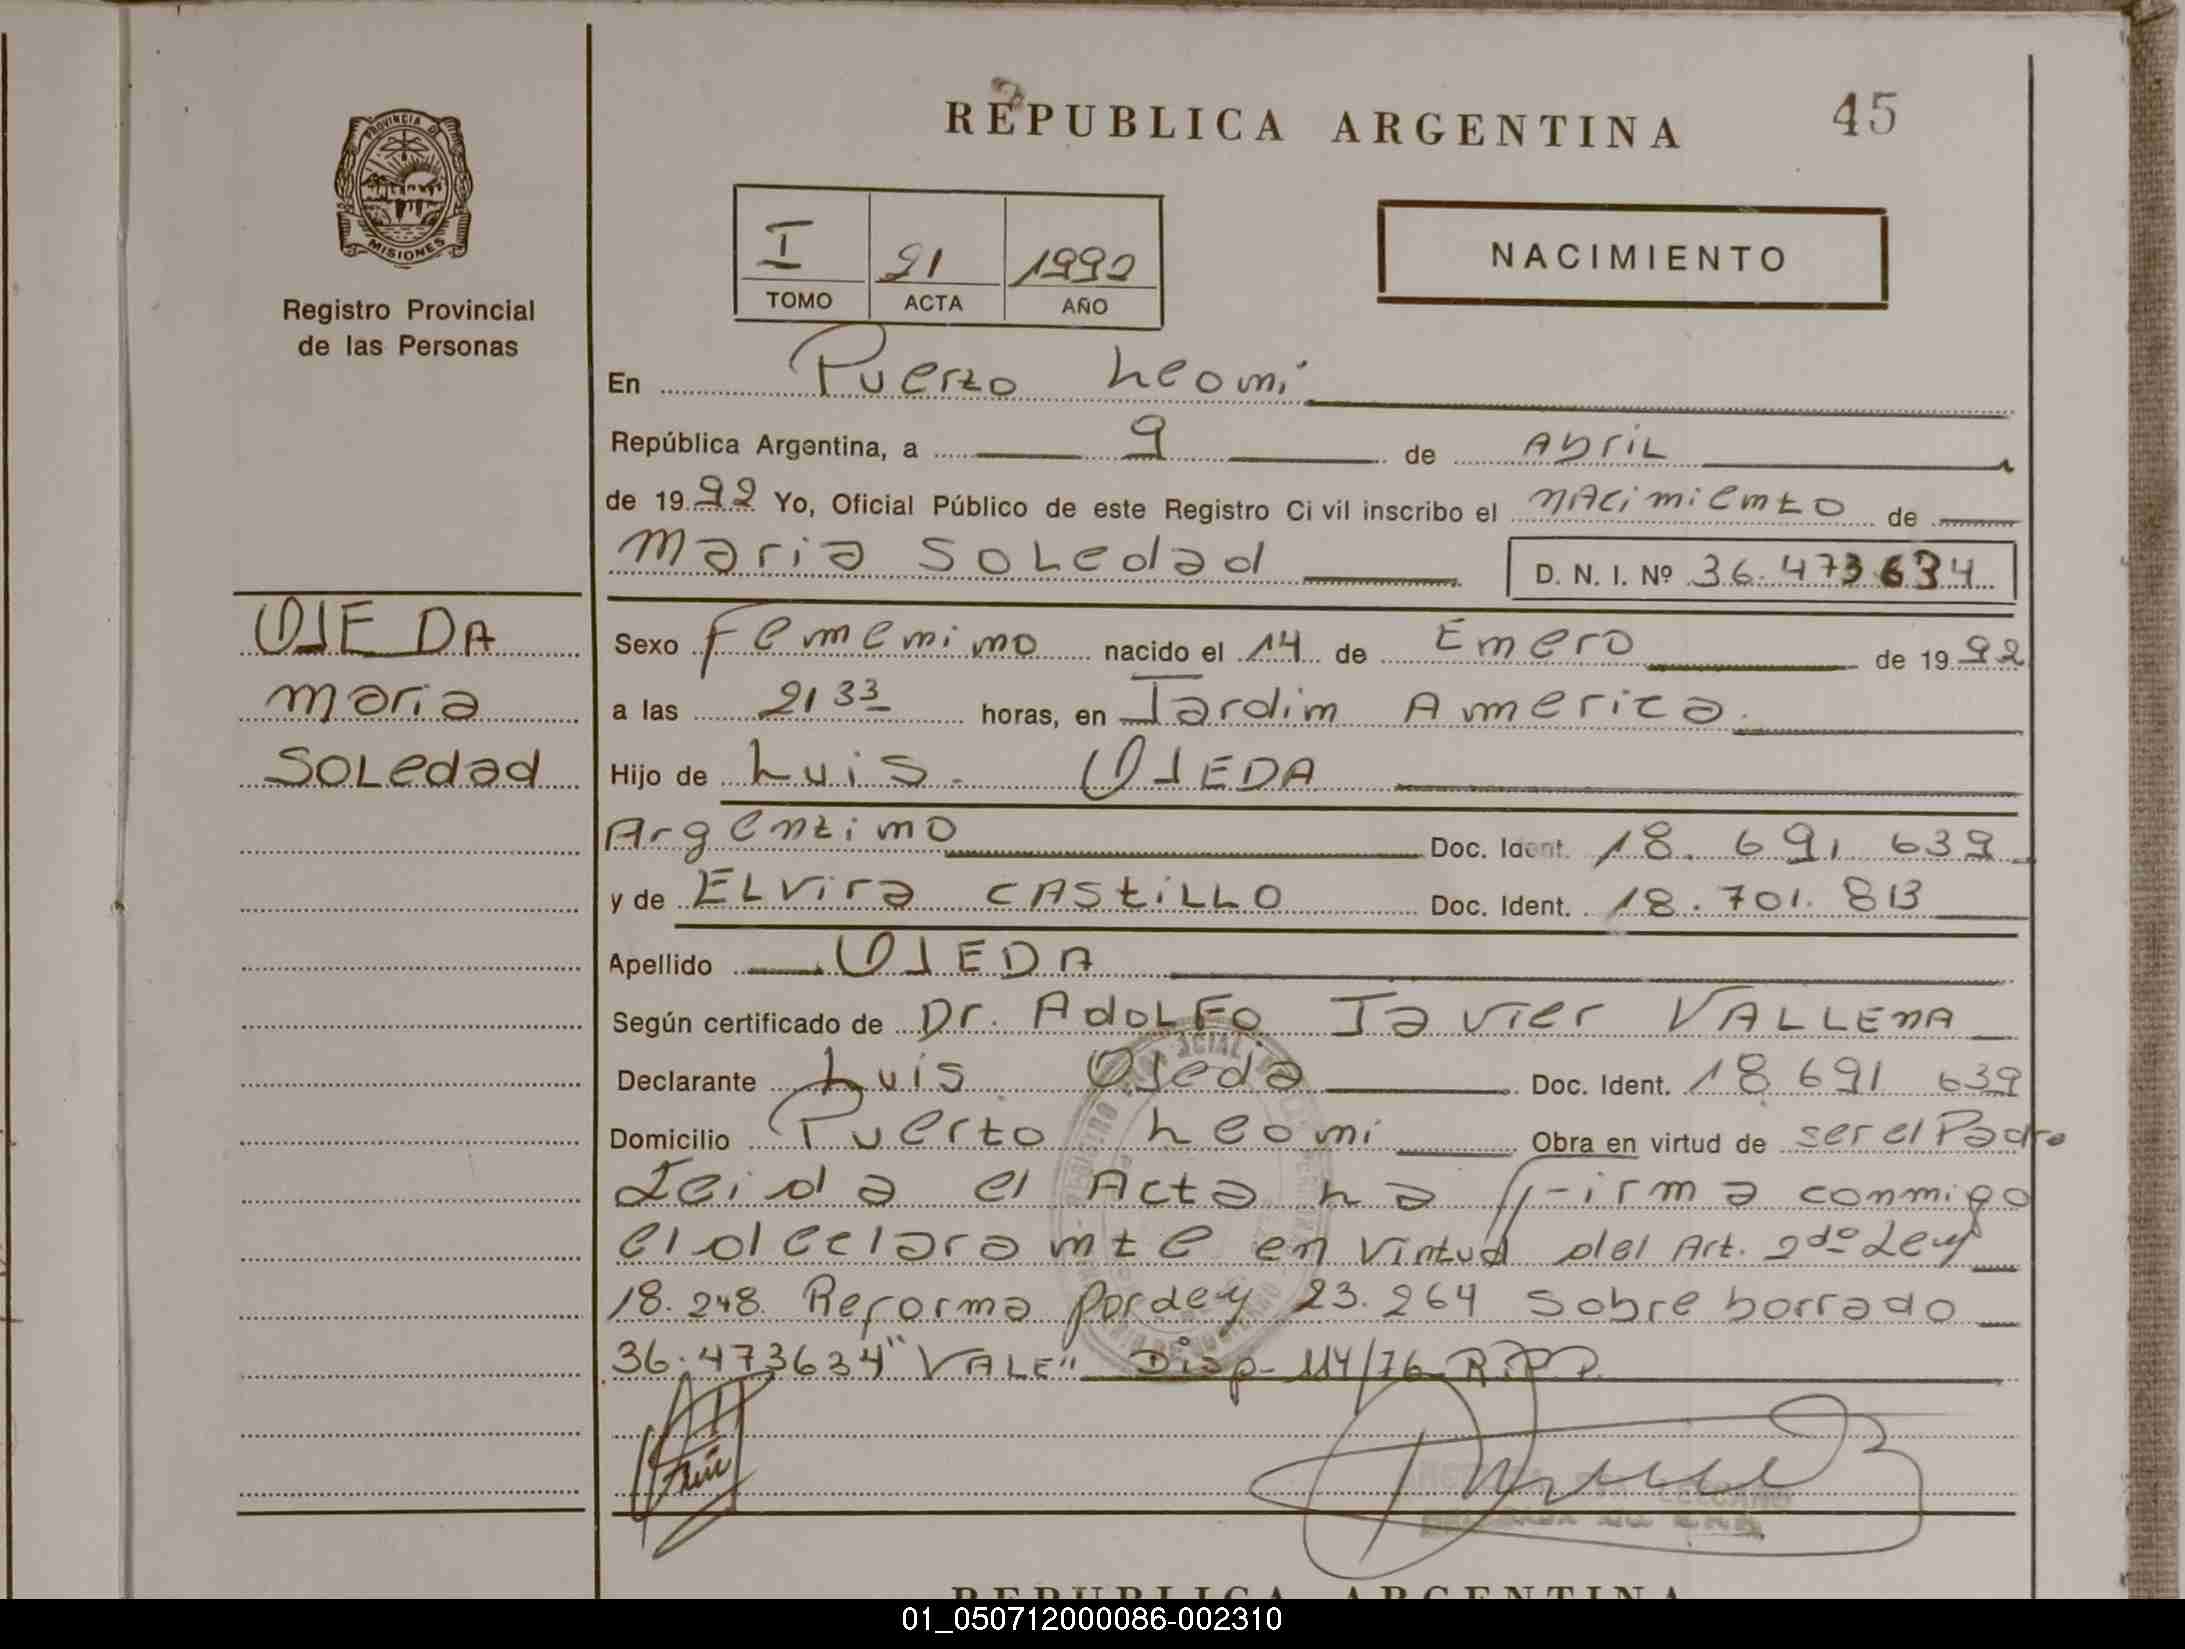 REPUBLICA ARGENTINA 45
PROVINCIA DE
MISIONES
Registro Provincial
de las Personas
I 91 1992
TOMO ACTA AÑO
NACIMIENTO
En Puerto Leoni
República Argentina, a 9 de Abril
de 1992 Yo, Oficial Público de este Registro Civil inscribo el nacimiento de
Maria Soledad D. N. I. Nº 36.473634
OJEDA
Maria
Soledad
Sexo Femenino nacido el 14 de Enero de 1992
a las 21 33 horas, en Jardin America
Hijo de Luis OJEDA
Argentino Doc. Ident. 18.691 639
y de ELvira CASTiLLO Doc. Ident. 18.701.813
Apellido OJEDA
Según certificado de Dr. AdoLFo Javier VALLENA
Declarante Luis Ojeda Doc. Ident. 18 691 639
Domicilio Puerto Leoni Obra en virtud de ser el Padre
Leida el Acta la firma conmigo
el declarante en virtud del Art. 2do Ley
18.248. Reforma por Ley 23.264 sobre borrado
36.473634 "VALE" Disp- 114/76 R.P.P.
REPUBLICA ARGENTINA
01_050712000086-002310